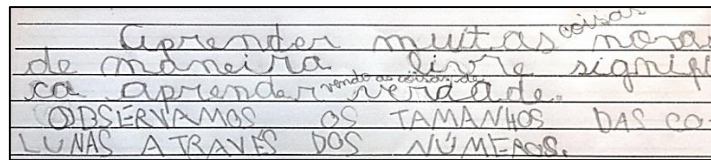 Aprender muitas coisas novas
de maneira livre signifi
ca aprender vendo as coisas de verdade.
OBSERVAMOS OS TAMANHOS DAS CO-
LUNAS ATRAVÉS DOS NÚMEROS.